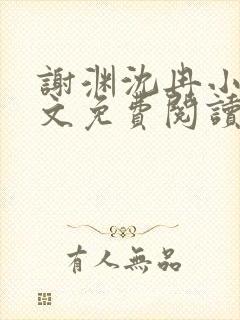 謝渊沈冉小
文免費閱讀
有人無品